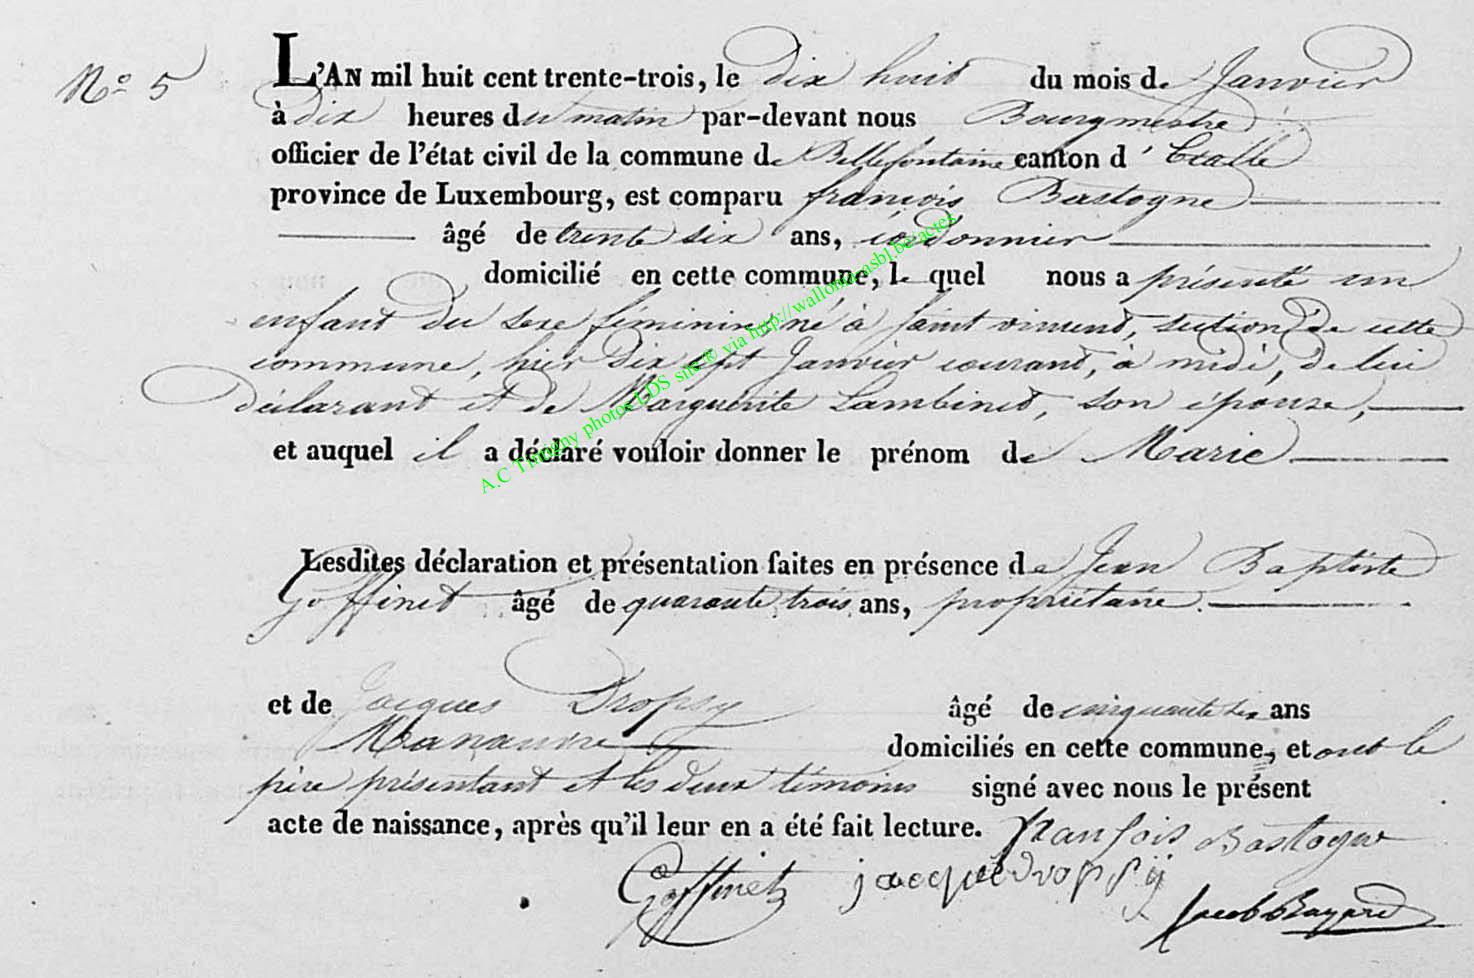 N.o 5
L'AN mil huit cent trente-trois, le dix huit du mois de Janvier
à dix heures du matin par-devant nous Bourgmestre
officier de l'état civil de la commune de Bellefontaine canton d' Etalle
province de Luxembourg, est comparu françois Bastogne
âgé de trente six ans, cordonnier
domicilié en cette commune, le quel nous a présenté un
enfant du sexe féminin né à Saint vincent, section de cette
commune, hier dix sept Janvier courant, à midi, de lui
déclarant et de Marguerite Lambinet son épouse,
et auquel il a déclaré vouloir donner le prénom de Marie
A.C Tintigny photos LDS site ® via http://wallonia-asbl.be/actes
Lesdites déclaration et présentation faites en présence de Jean Baptiste
Goffinet âgé de quarante trois ans, propriétaire.
et de Jacques Dropsy âgé de cinquante six ans
Manœuvre domiciliés en cette commune, et ont le
père présentant et les deux témoins signé avec nous le présent
acte de naissance, après qu'il leur en a été fait lecture. franfois Bastogne
Goffinet jacque dropsij
Jacob Bayard